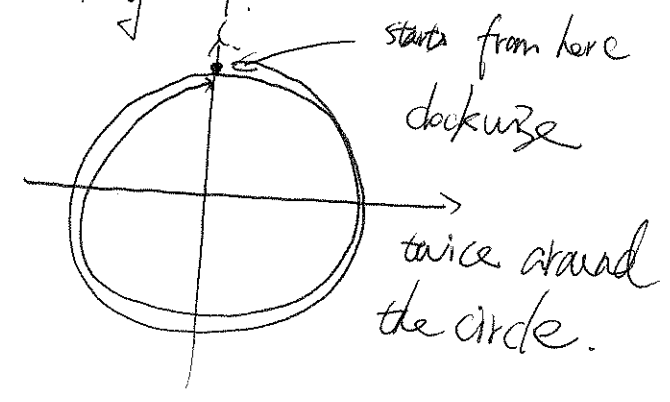 starts from here
clockwize
twice around
the circle.